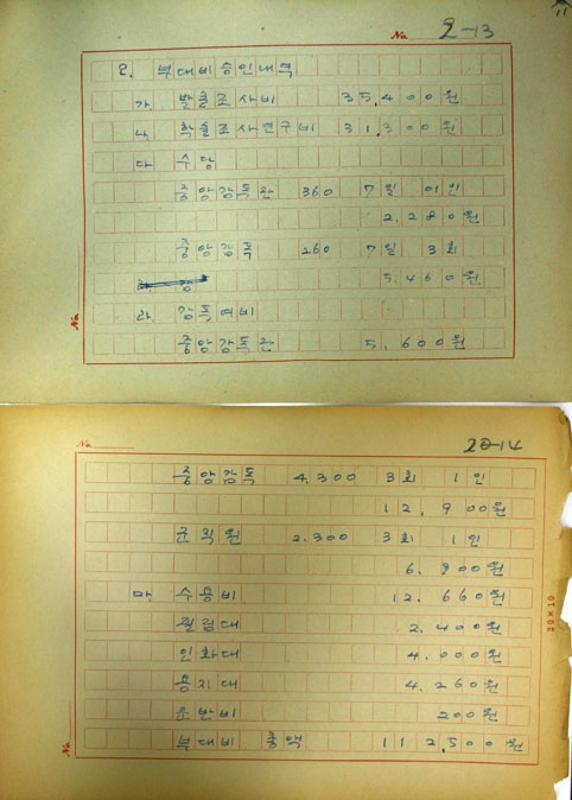 No 2-13
2. 부대비승인내역
가. 발굴조사비 35,400원
나. 학술조사연구비 31,300원
다 수당
중앙감독관 360 7일 01인
2.280원
중앙감독 260 7일 3회
5.460원
라 감독여비
중앙감독관 5.600원
No
No
20-14
중앙감독 4.300 3회 1인
12.900원
군직원 2.300 3회 1인
6.900원
마 수용비 12.660원
필림대 2.400원
인화대 4.000원
용지대 4.260원
운반비 200원
부대비 총액 112,500원
20×10
No